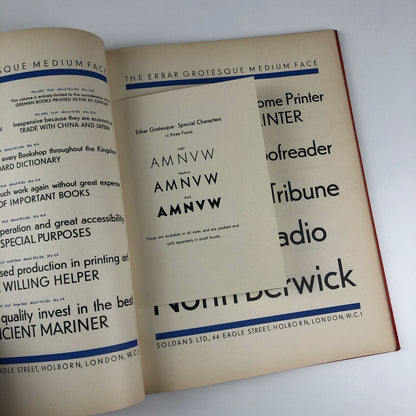 SQUE MEDIUM FACE
This volume is entirely limited to the consideration of
GERMAN BOOKS PRINTED IN THE XV. CENTURY
Inexpensive because they are economical
TRADE WITH CHINA AND JAPAN
every Bookshop throughout the Kingdom
DARD DICTIONARY
uch work again without great expense
OF IMPORTANT BOOKS
operation and great accessibility
SPECIAL PURPOSES
sed production in printing art
WILLING HELPER
quality invest in the best
CIENT MARINER
EAGLE STREET, HOLBORN, LONDON, W.C.1
THE ERBAR GROTESQUE MEDIUM FACE
Erbar Grotesque - Special Characters
in three Faces
Light
AMNVW
Medium
AMNVW
Bold
AMNVW
These are available in all sizes and are packed and
sold separately in small founts.
ome Printer
INTER
oofreader
Tribune
adio
North Berwick
SOLDANS LTD., 44 EAGLE STREET, HOLBORN, LONDON, W.C.1